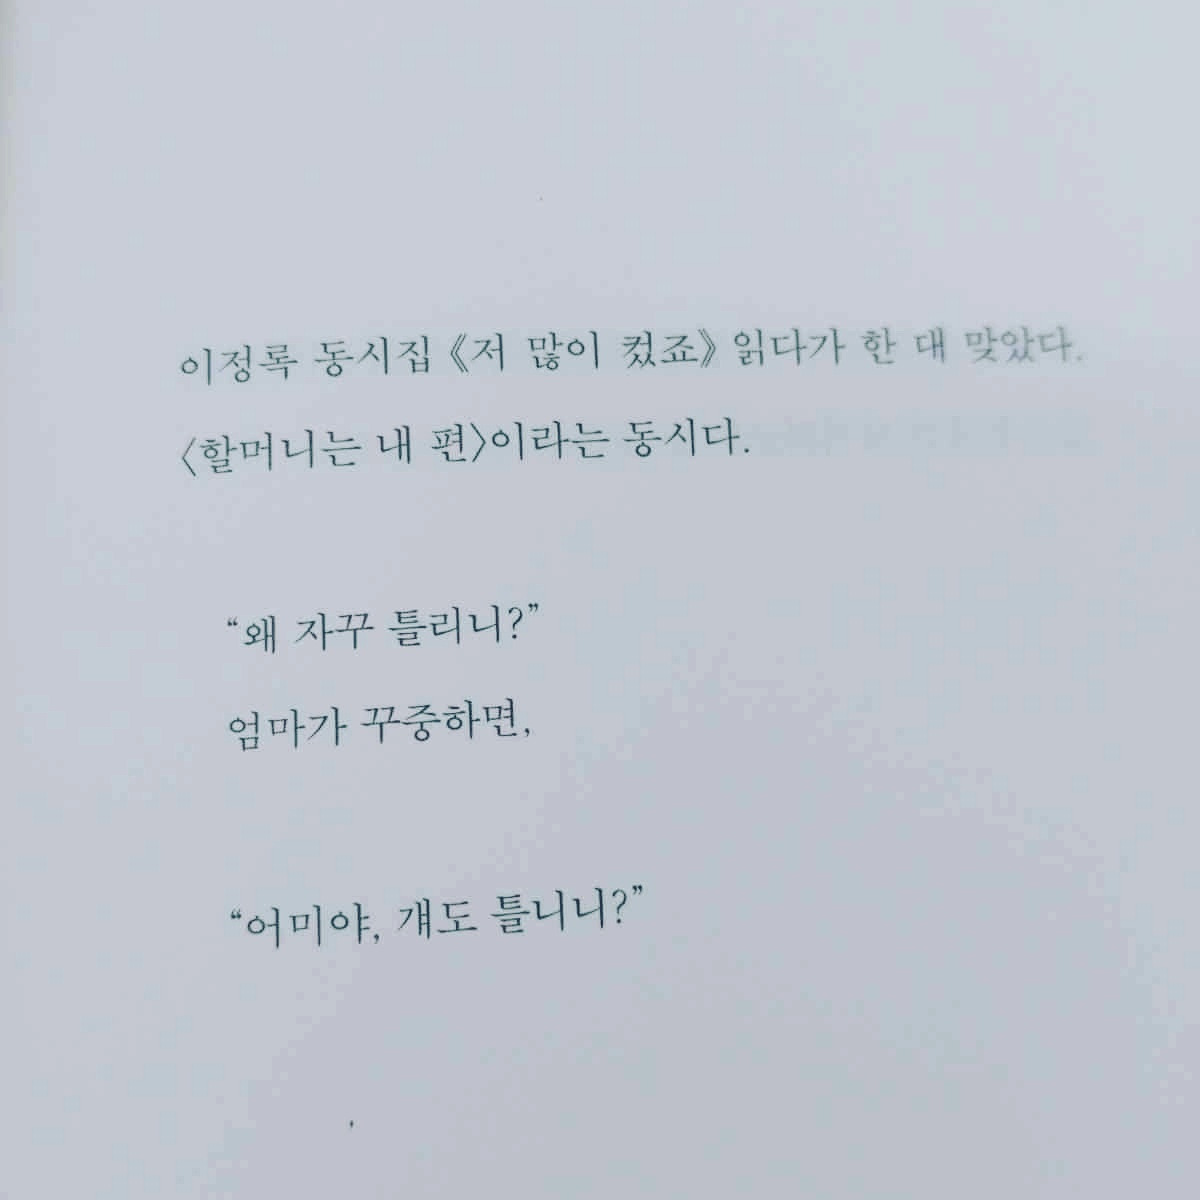 이정록 동시집 《저 많이 컸죠》 읽다가 한 대 맞았다.
〈할머니는 내 편〉이라는 동시다.
“왜 자꾸 틀리니?”
엄마가 꾸중하면,
“어미야, 걔도 틀니니?”